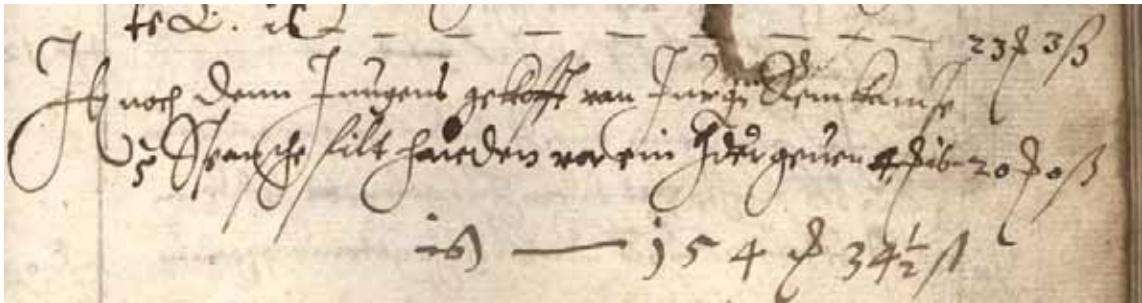 is 23 ₰ 3 ß
It noch denn Jungens gekofft van Jurgen
5 Spansche filt hoieden vor ein Jder geven 4 ₰ is 20 ₰ 0 ß
is 154 ₰ 34½ ß